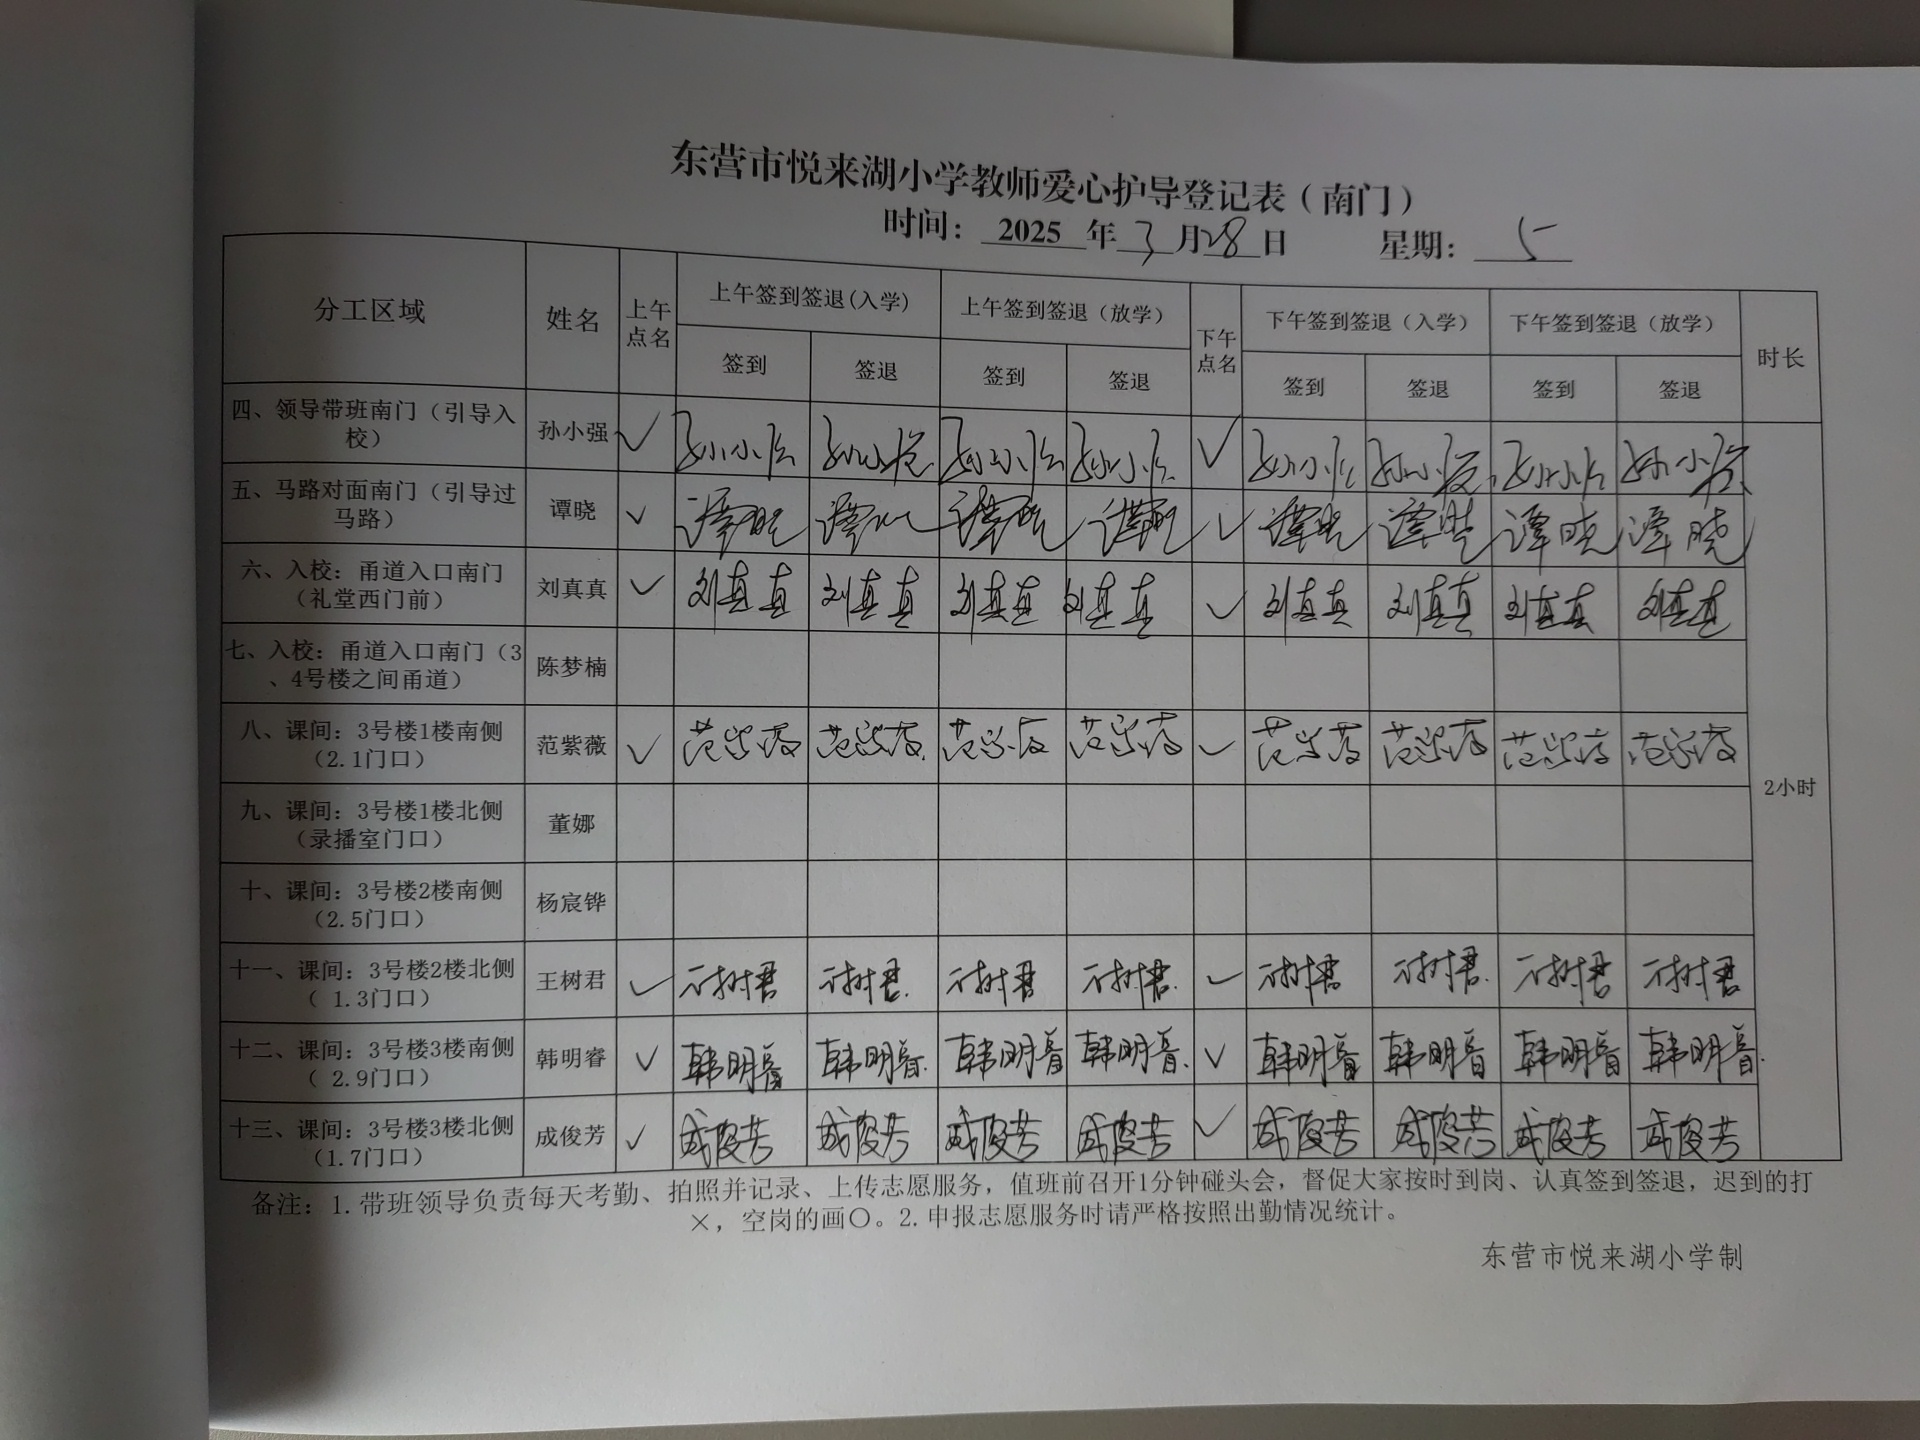 东营市悦来湖小学教师爱心护导登记表（南门）
时间： 2025 年 3 月 28 日 星期： 5
分工区域 姓名 上午点名 上午签到签退(入学) 上午签到签退（放学） 下午点名 下午签到签退（入学） 下午签到签退（放学） 时长
签到 签退 签到 签退 签到 签退 签到 签退
四、领导带班南门（引导入
校） 孙小强 ✓ 孙小强 孙小强 孙小强 孙小强 ✓ 孙小强 孙小强 孙小强 孙小强
五、马路对面南门（引导过
马路） 谭晓 ✓ 谭晓 谭晓 谭晓 谭晓 ✓ 谭晓 谭晓 谭晓 谭晓
六、入校：甬道入口南门
（礼堂西门前） 刘真真 ✓ 刘真真 刘真真 刘真真 刘真真 ✓ 刘真真 刘真真 刘真真 刘真真
七、入校：甬道入口南门（3
、4号楼之间甬道） 陈梦楠
八、课间：3号楼1楼南侧
（2.1门口） 范紫薇 ✓ 范紫薇 范紫薇 范紫薇 范紫薇 ✓ 范紫薇 范紫薇 范紫薇 范紫薇
2小时
九、课间：3号楼1楼北侧
（录播室门口） 董娜
十、课间：3号楼2楼南侧
（2.5门口） 杨宸铧
十一、课间：3号楼2楼北侧
（ 1.3门口） 王树君 ✓ 王树君 王树君 王树君 王树君 ✓ 王树君 王树君 王树君 王树君
十二、课间：3号楼3楼南侧
（ 2.9门口） 韩明睿 ✓ 韩明睿 韩明睿 韩明睿 韩明睿 ✓ 韩明睿 韩明睿 韩明睿 韩明睿
十三、课间：3号楼3楼北侧
（1.7门口） 成俊芳 ✓ 成俊芳 成俊芳 成俊芳 成俊芳 ✓ 成俊芳 成俊芳 成俊芳 成俊芳
备注：1.带班领导负责每天考勤、拍照并记录、上传志愿服务，值班前召开1分钟碰头会，督促大家按时到岗、认真签到签退，迟到的打
×，空岗的画〇。2.申报志愿服务时请严格按照出勤情况统计。
东营市悦来湖小学制